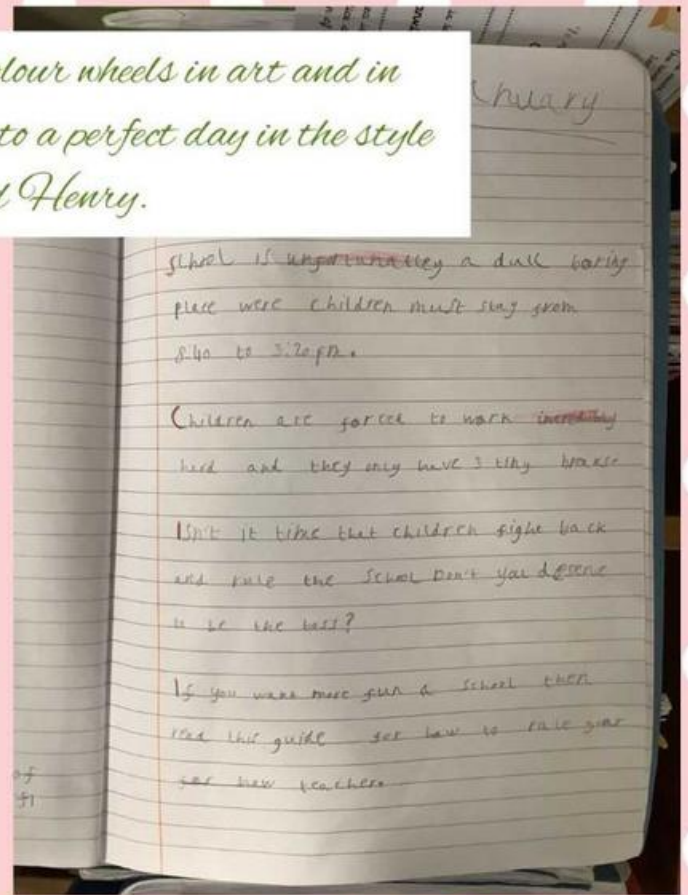 lour wheels in art and in
to a perfect day in the style
Henry.
nuary
School is unfortunatley a dull boring
place were children must stay from
8:40 to 3:20pm.
Children are forced to work
hard and they only have 3 tiny
Isn't it time that children fight back
and rule the school Don't you deserve
to be the boss?
If you want more fun a school then
read this guide for how to rule your
for new teacher.
of